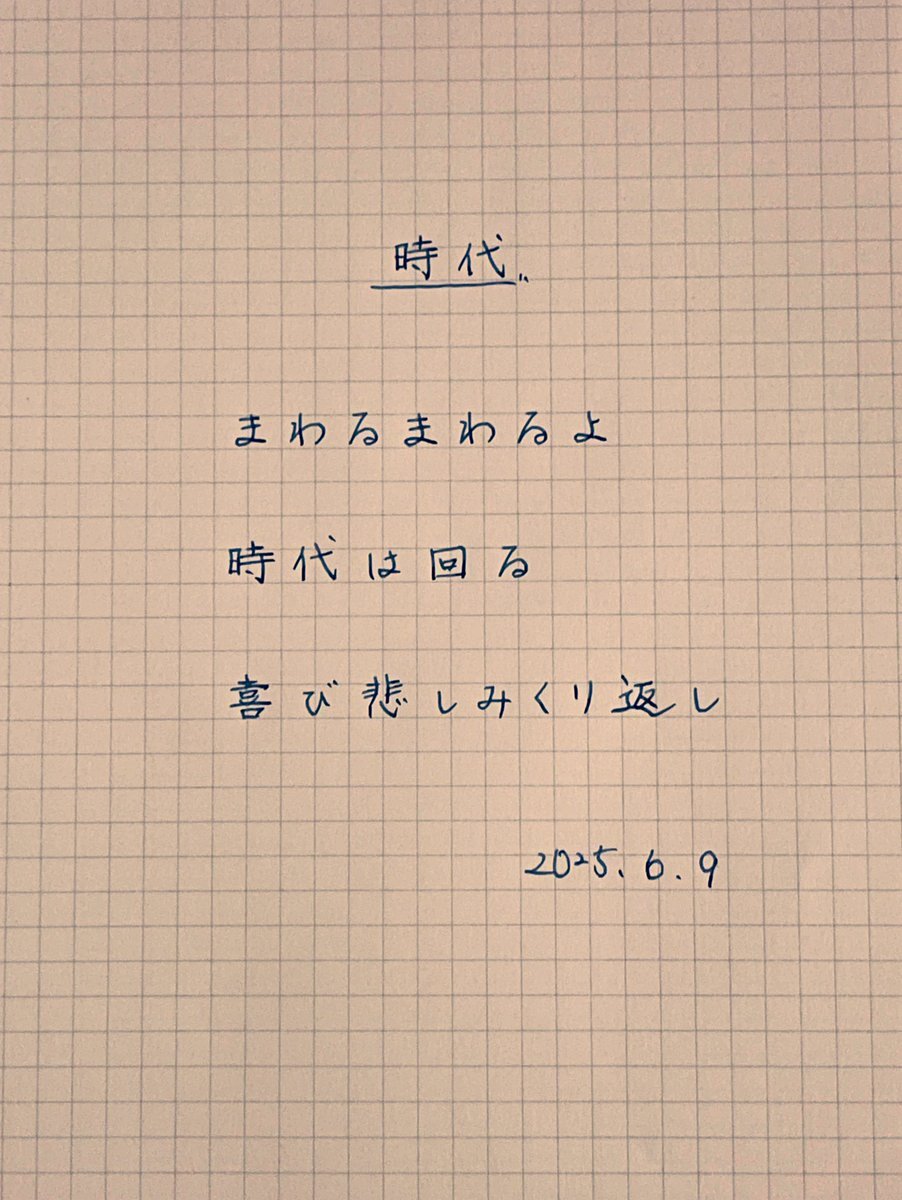 時代
まわるまわるよ
時代は回る
喜び悲しみくり返し
2025.6.9